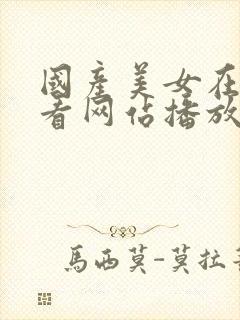 國產美女在
看网佔播放
馬西莫-莫拉